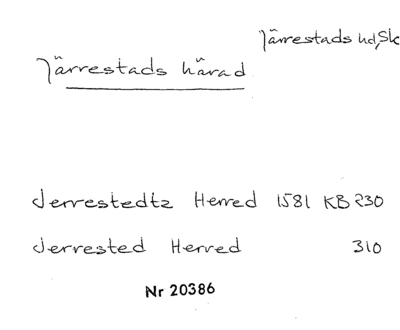 Järrestads hd, Sk
Järrestads härad
Jerrestedtz Herred 1581 KB 230
Jerrested Herred 310
Nr 20386